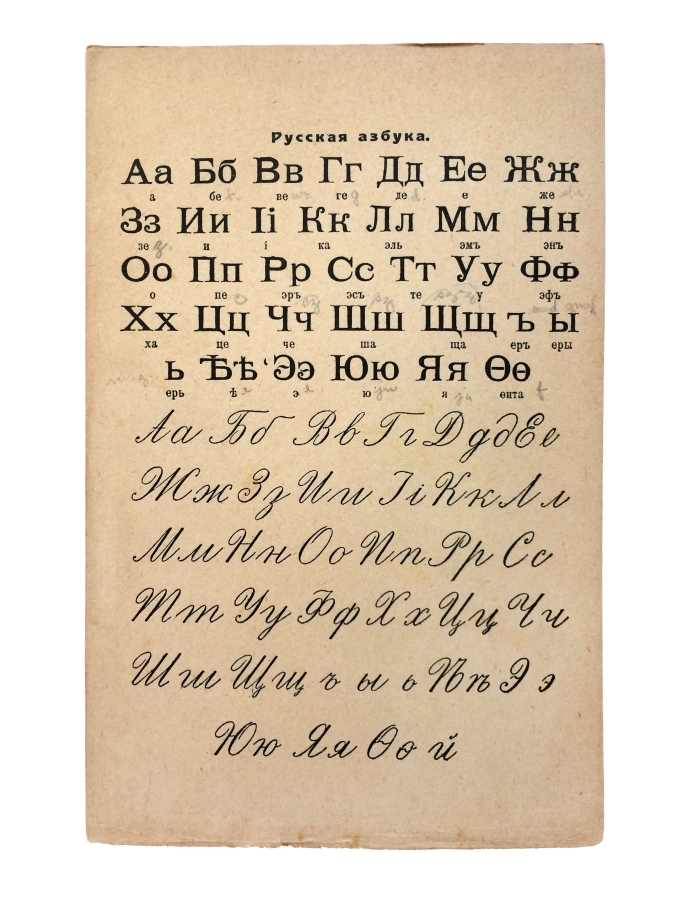 Русская азбука.
Аа Бб Вв Гг Дд Ее Жж
а бе ве ге де е же
Зз Ии Іі Кк Лл Мм Нн
зе и і ка эль эмъ энъ
Оо Пп Рр Сс Тт Уу Фф
о пе эръ эсъ те у эфъ
Хх Цц Чч Шш Щщ ъ ы
ха це че ша ща еръ еры
ь Ѣѣ Ээ Юю Яя Ѳѳ
ерь ѣ э ю я ѳита
Аа Бб Вв Гг Д д д Ее
Жж Зз Ии Іі Кк Лл
Мм Нн Оо Пп Рр Сс
Тт Уу Фф Хх Цц Чч
Шш Щщ ъ ы ь Ѣѣ Ээ
Юю Яя Ѳѳ й